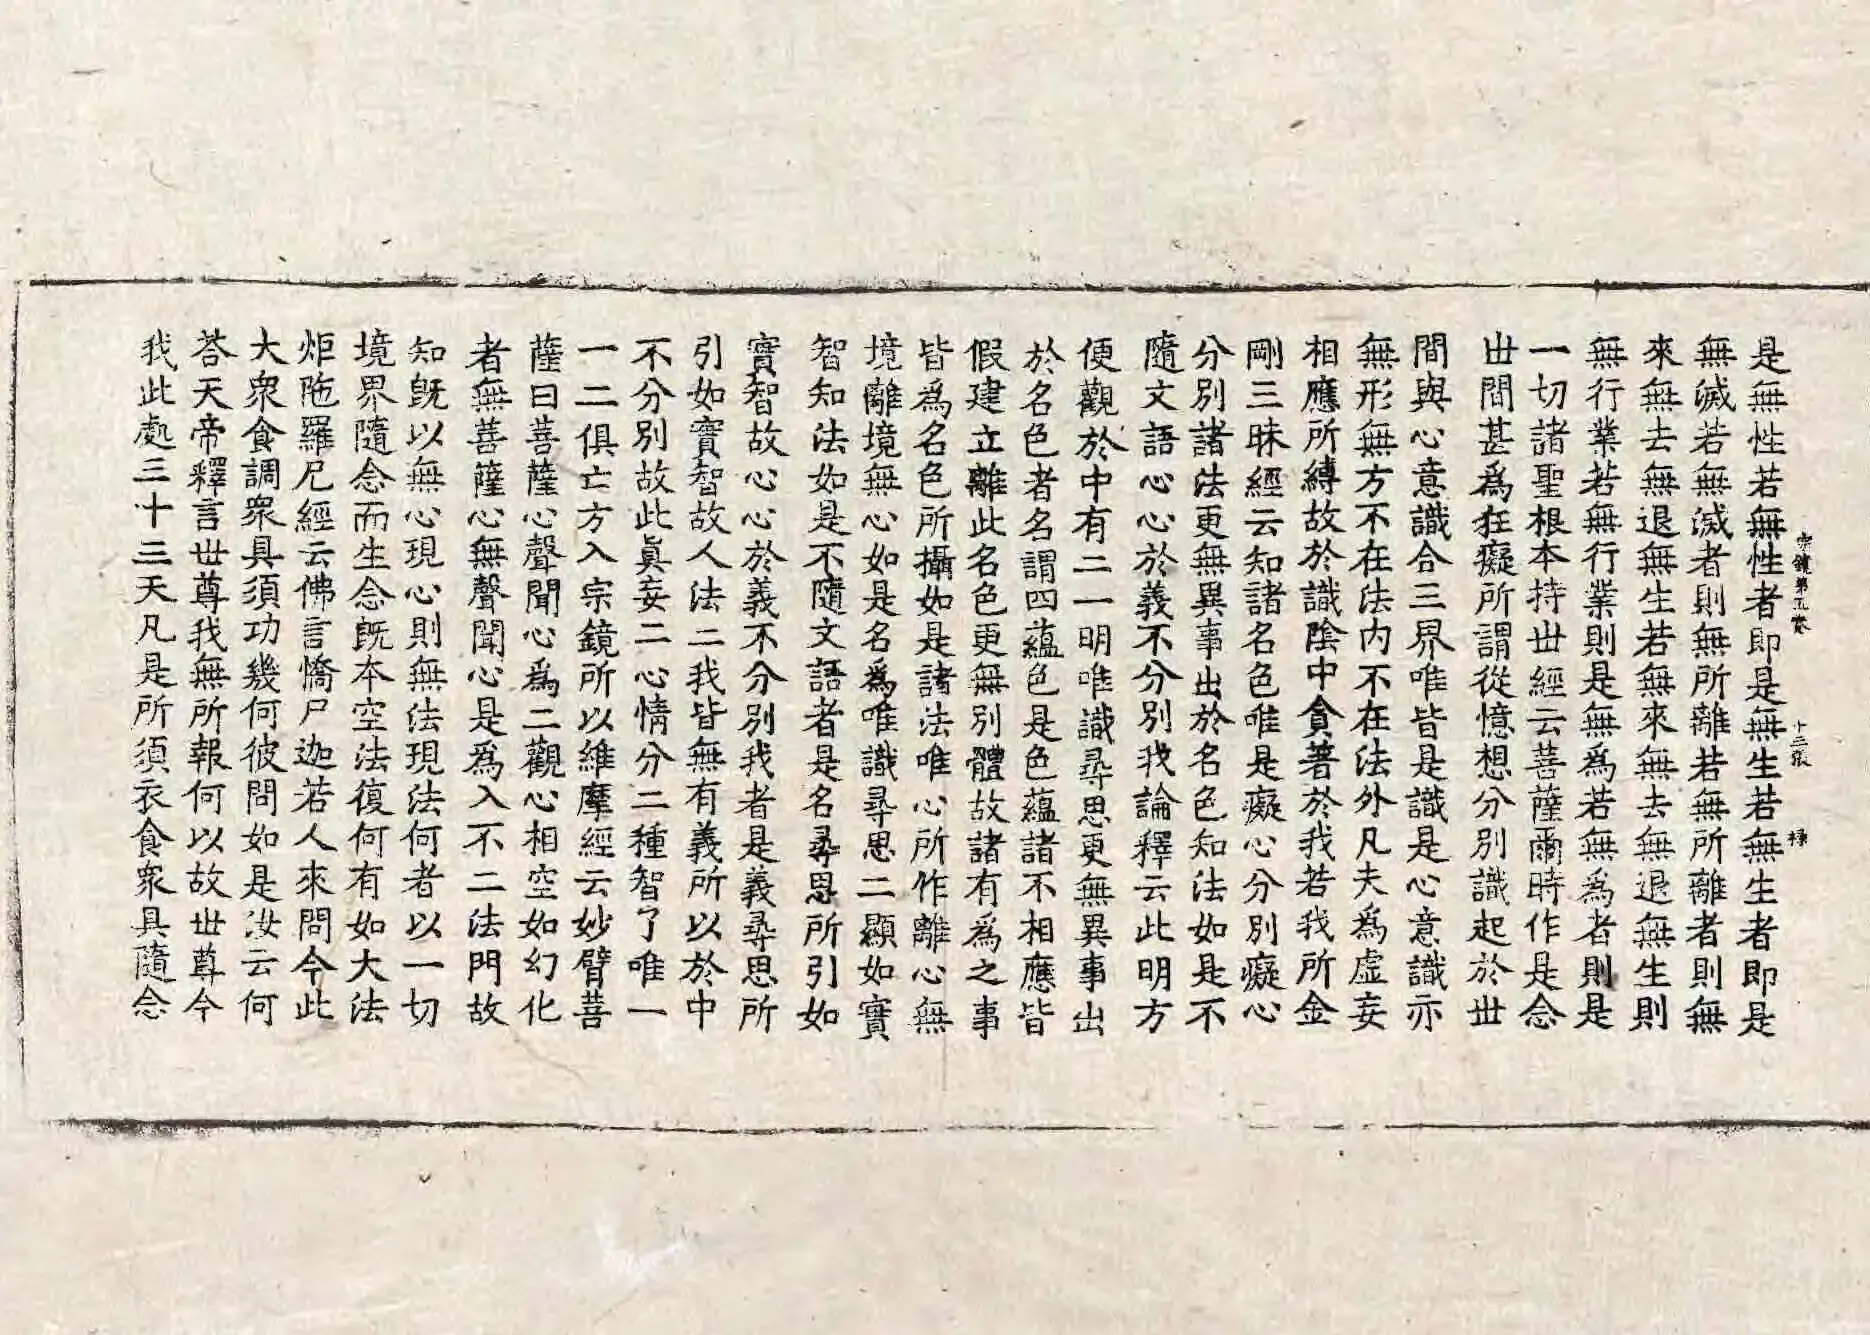 宗鏡第五卷 十三張 祿
是無性若無性者即是無生若無生者即是
無滅若無滅者則無所離若無所離者則無
來無去無退無生若無來無去無退無生則
無行業若無行業則是無為若無為者則是
一切諸聖根本持世經云菩薩爾時作是念
世間甚為狂癡所謂從憶想分別識起於世
間與心意識合三界唯皆是識是心意識亦
無形無方不在法內不在法外凡夫為虛妄
相應所縛故於識陰中貪著於我若我所金
剛三昧經云知諸名色唯是癡心分別癡心
分別諸法更無異事出於名色知法如是不
隨文語心心於義不分別我論釋云此明方
便觀於中有二一明唯識尋思更無異事出
於名色者名謂四蘊色是色蘊諸不相應皆
假建立離此名色更無別體故諸有為之事
皆為名色所攝如是諸法唯心所作離心無
境離境無心如是名為唯識尋思二顯如實
智知法如是不隨文語者是名尋思所引如
實智故心心於義不分別我者是義尋思所
引如實智故人法二我皆無有義所以於中
不分別故此真妄二心情分二種智了唯一
一二俱亡方入宗鏡所以維摩經云妙臂菩
薩曰菩薩心聲聞心為二觀心相空如幻化
者無菩薩心無聲聞心是為入不二法門故
知既以無心現心則無法現法何者以一切
境界隨念而生念既本空法復何有如大法
炬陁羅尼經云佛言憍尸迦若人來問今此
大衆食調衆具須功幾何彼問如是汝云何
荅天帝釋言世尊我無所報何以故世尊今
我此處三十三天凡是所須衣食衆具隨念